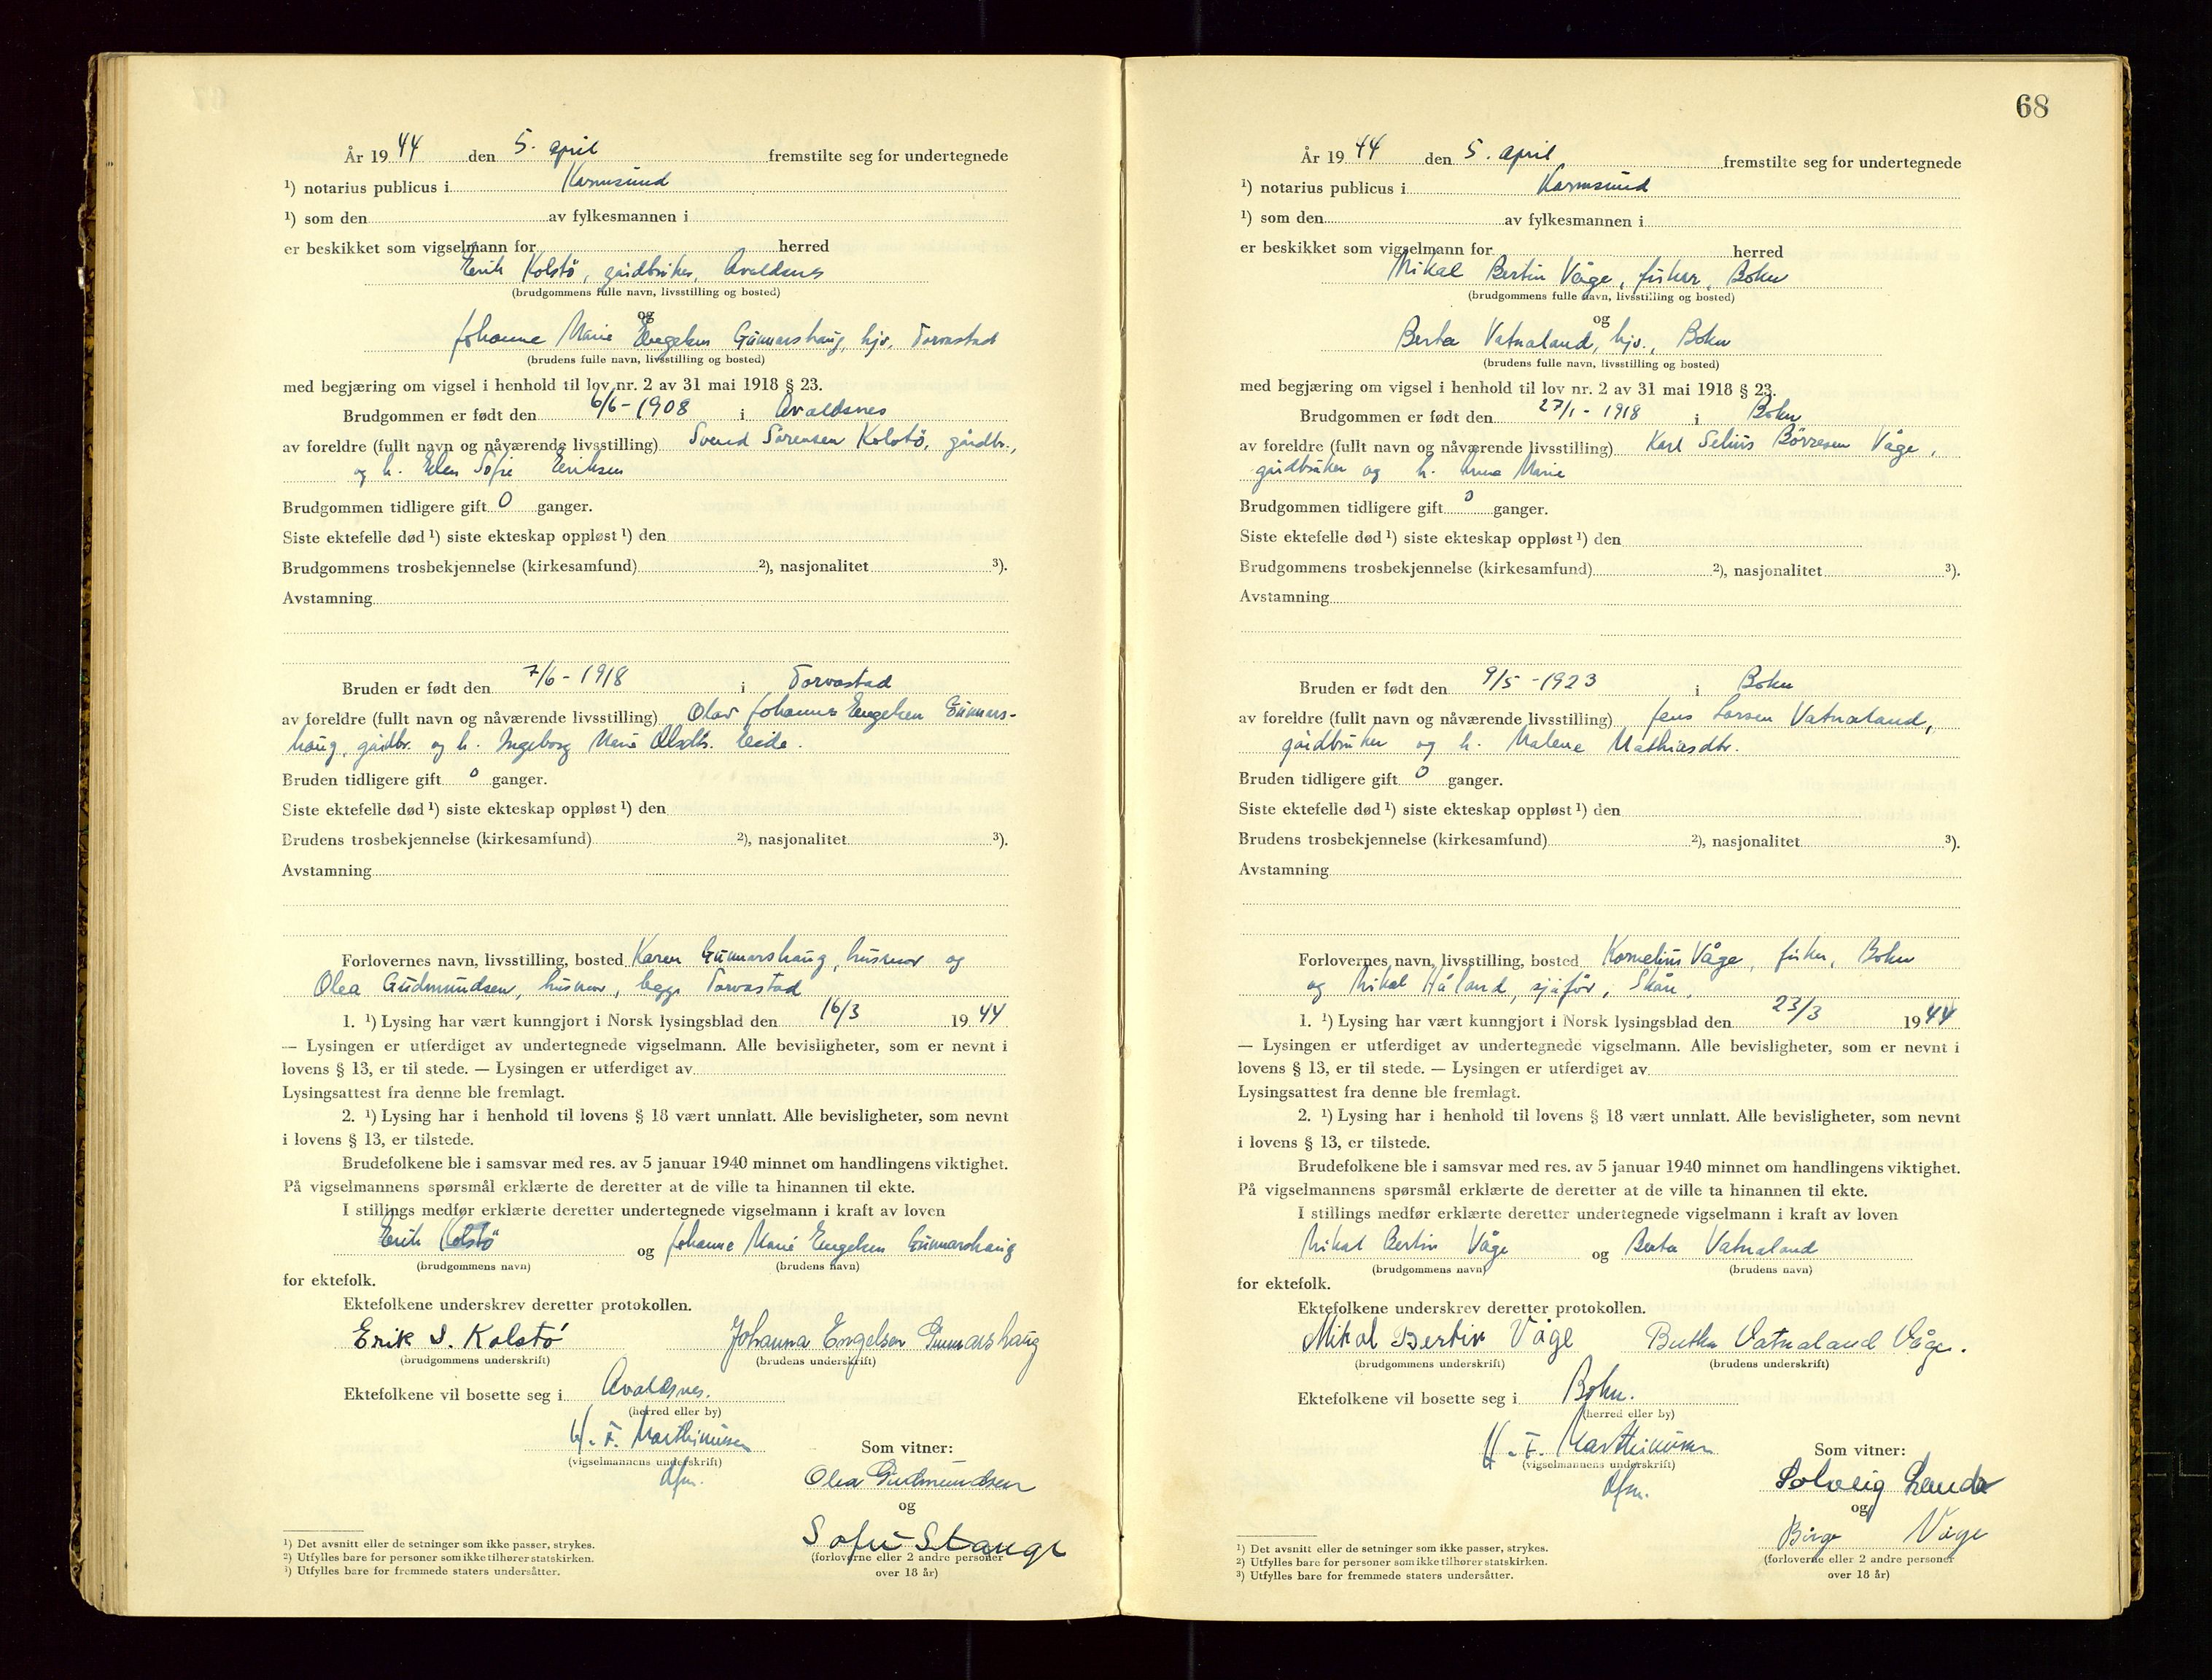 År 19 44 den 5. april fremstilte seg for undertegnede
¹) notarius publicus i Karmsund
¹) som den av fylkesmannen i
er beskikket som vigselmann for herred
Erik Kolstö, gårdbruker, Avaldsnes
(brudgommens fulle navn, livsstilling og bosted)
og
Johanne Marie Engelsen Gunnarshaug, hjv. Torvastad
(brudens fulle navn, livsstilling og bosted)
med begjæring om vigsel i henhold til lov nr. 2 av 31 mai 1918 § 23.
Brudgommen er født den 6/6 - 1908 i Avaldsnes
av foreldre (fullt navn og nåværende livsstilling) Svend Sørensen Kolstö, gårdbr.,
og h. Elen Sofie Eriksen
Brudgommen tidligere gift 0 ganger.
Siste ektefelle død ¹) siste ekteskap oppløst ¹) den
Brudgommens trosbekjennelse (kirkesamfund) ²), nasjonalitet ³).
Avstamning
Bruden er født den 7/6 - 1918 i Torvastad
av foreldre (fullt navn og nåværende livsstilling) Olav Johannes Engelsen Gunnars-
haug, gårdbr. og h. Ingeborg Marie Olsdtr.
Bruden tidligere gift 0 ganger.
Siste ektefelle død ¹) siste ekteskap oppløst ¹) den
Brudens trosbekjennelse (kirkesamfund) ²), nasjonalitet ³).
Avstamning
Forlovernes navn, livsstilling, bosted Karen Gunnarshaug, husmor og
Olea Gudmundsen, husmor, begge Torvastad
1. ¹) Lysing har vært kunngjort i Norsk lysingsblad den 16/3 19 44
— Lysingen er utferdiget av undertegnede vigselmann. Alle bevisligheter, som er nevnt i
lovens § 13, er til stede. — Lysingen er utferdiget av
Lysingsattest fra denne ble fremlagt.
2. ¹) Lysing har i henhold til lovens § 18 vært unnlatt. Alle bevisligheter, som nevnt
i lovens § 13, er tilstede.
Brudefolkene ble i samsvar med res. av 5 januar 1940 minnet om handlingens viktighet.
På vigselmannens spørsmål erklærte de deretter at de ville ta hinannen til ekte.
I stillings medfør erklærte deretter undertegnede vigselmann i kraft av loven
Erik Kolstö og Johanne Marie Engelsen Gunnarshaug
(brudgommens navn) (brudens navn)
for ektefolk.
Ektefolkene underskrev deretter protokollen.
Erik S. Kolstö Johanna Engelsen Gunnarshaug
(brudgommens underskrift) (brudens underskrift)
Ektefolkene vil bosette seg i Avaldsnes.
(herred eller by)
F. Marthinussen
(vigselmannens underskrift)
Som vitner:
Olea Gudmundsen
og
Sofie Stange
(forloverne eller 2 andre personer
over 18 år)
¹) Det avsnitt eller de setninger som ikke passer, strykes.
²) Utfylles bare for personer som ikke tilhører statskirken.
³) Utfylles bare for fremmede staters undersåtter.
68
År 19 44 den 5. april fremstilte seg for undertegnede
¹) notarius publicus i Karmsund
¹) som den av fylkesmannen i
er beskikket som vigselmann for herred
Mikal Bertin Våge, fisker, Bokn
(brudgommens fulle navn, livsstilling og bosted)
og
Berta Vatnaland, hjv., Bokn
(brudens fulle navn, livsstilling og bosted)
med begjæring om vigsel i henhold til lov nr. 2 av 31 mai 1918 § 23.
Brudgommen er født den 27/1 - 1918 i Bokn
av foreldre (fullt navn og nåværende livsstilling) Karl Selius Børresen Våge,
gårdbruker og h. Anna Marie
Brudgommen tidligere gift 0 ganger.
Siste ektefelle død ¹) siste ekteskap oppløst ¹) den
Brudgommens trosbekjennelse (kirkesamfund) ²), nasjonalitet ³).
Avstamning
Bruden er født den 9/5 - 1923 i Bokn
av foreldre (fullt navn og nåværende livsstilling) Jens Larsen Vatnaland,
gårdbruker og h. Malene Mathiasdtr.
Bruden tidligere gift 0 ganger.
Siste ektefelle død ¹) siste ekteskap oppløst ¹) den
Brudens trosbekjennelse (kirkesamfund) ²), nasjonalitet ³).
Avstamning
Forlovernes navn, livsstilling, bosted Kornelius Våge, fisker, Bokn
og Mikal Håland, sjåfør, Skåre,
1. ¹) Lysing har vært kunngjort i Norsk lysingsblad den 23/3 19 44
— Lysingen er utferdiget av undertegnede vigselmann. Alle bevisligheter, som er nevnt i
lovens § 13, er til stede. — Lysingen er utferdiget av
Lysingsattest fra denne ble fremlagt.
2. ¹) Lysing har i henhold til lovens § 18 vært unnlatt. Alle bevisligheter, som nevnt
i lovens § 13, er tilstede.
Brudefolkene ble i samsvar med res. av 5 januar 1940 minnet om handlingens viktighet.
På vigselmannens spørsmål erklærte de deretter at de ville ta hinannen til ekte.
I stillings medfør erklærte deretter undertegnede vigselmann i kraft av loven
Mikal Bertin Våge og Berta Vatnaland
(brudgommens navn) (brudens navn)
for ektefolk.
Ektefolkene underskrev deretter protokollen.
Mikal Bertin Våge Vatnaland Våge.
(brudgommens underskrift) (brudens underskrift)
Ektefolkene vil bosette seg i Bokn.
(herred eller by)
F. Marthinussen
(vigselmannens underskrift)
Som vitner:
Solveig
og
Våge
(forloverne eller 2 andre personer
over 18 år)
¹) Det avsnitt eller de setninger som ikke passer, strykes.
²) Utfylles bare for personer som ikke tilhører statskirken.
³) Utfylles bare for fremmede staters undersåtter.